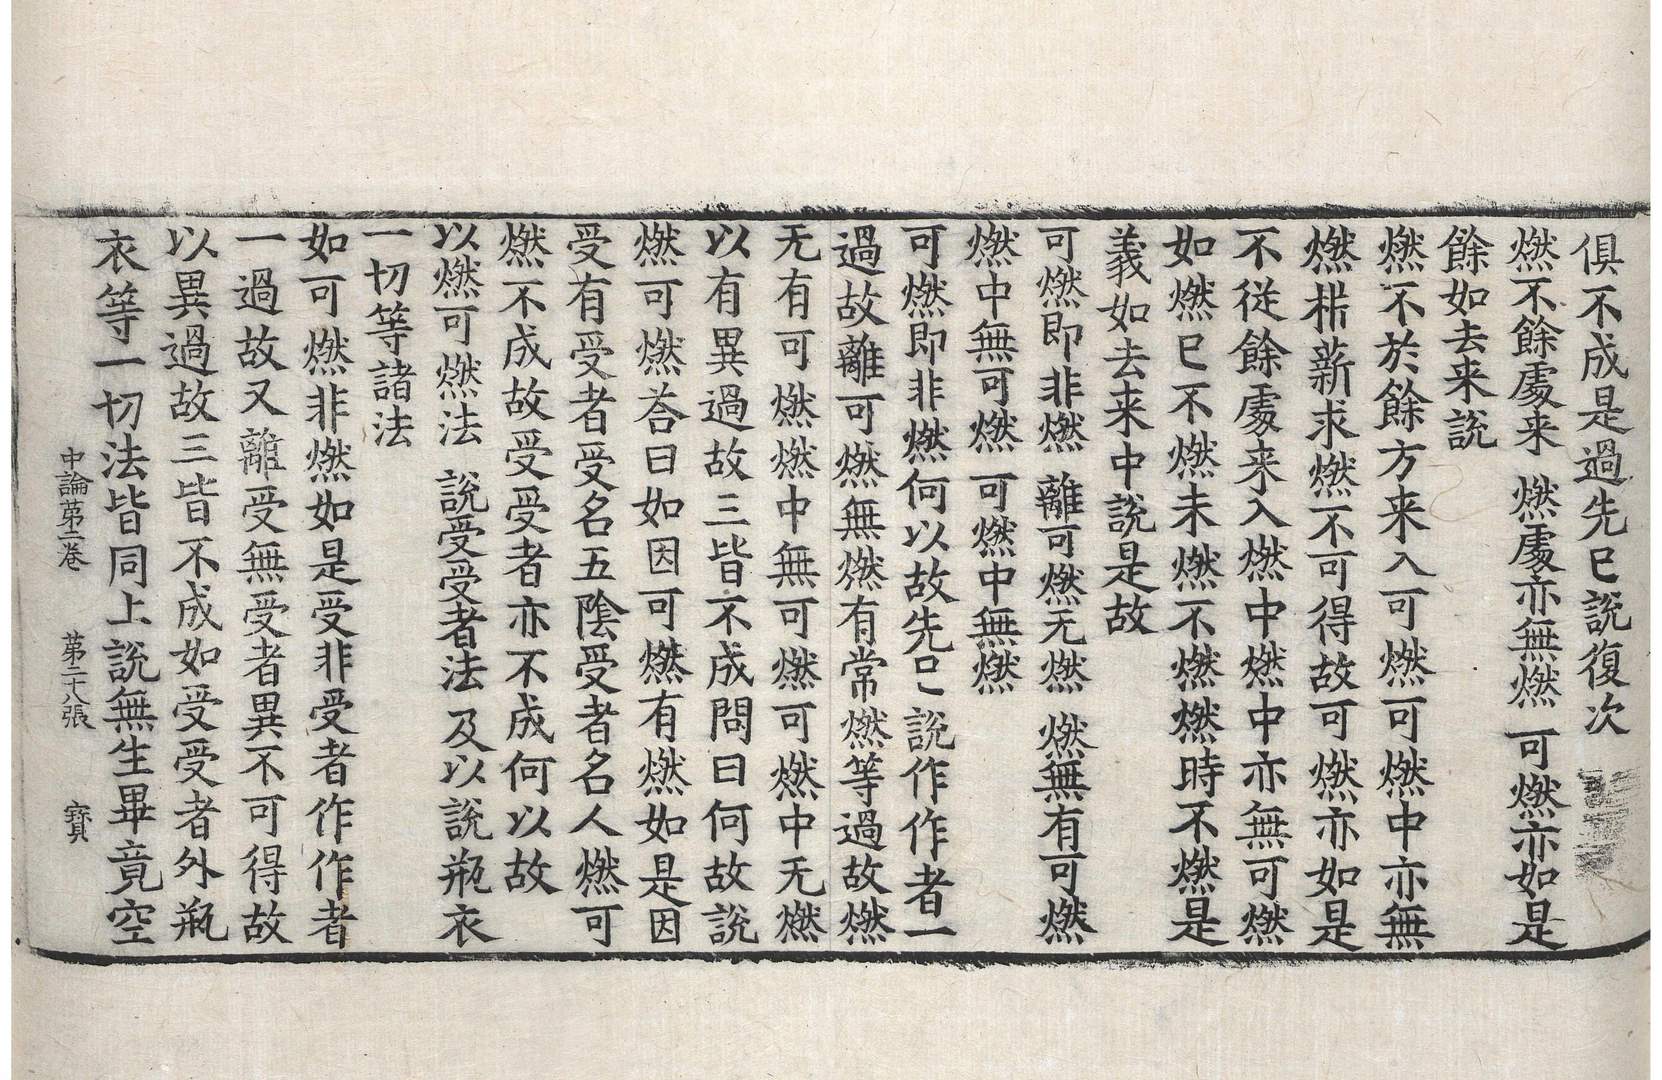 俱不成是過先已說復次
燃不餘處来　燃處亦無燃　可燃亦如是
餘如去来說
燃不於餘方来入可燃可燃中亦無
燃㭊薪求燃不可得故可燃亦如是
不從餘處来入燃中燃中亦無可燃
如燃已不燃未燃不燃燃時不燃是
義如去来中說是故
可燃即非燃　離可燃无燃　燃無有可燃
燃中無可燃　可燃中無燃
可燃即非燃何以故先已說作作者一
過故離可燃無燃有常燃等過故燃
无有可燃燃中無可燃可燃中无燃
以有異過故三皆不成問曰何故說
燃可燃荅曰如因可燃有燃如是因
受有受者受名五陰受者名人燃可
燃不成故受受者亦不成何以故
以燃可燃法　說受受者法　及以說瓶衣
一切等諸法
如可燃非燃如是受非受者作作者
一過故又離受無受者異不可得故
以異過故三皆不成如受受者外瓶
衣等一切法皆同上說無生畢竟空
中論第二卷　第二十八張　寶